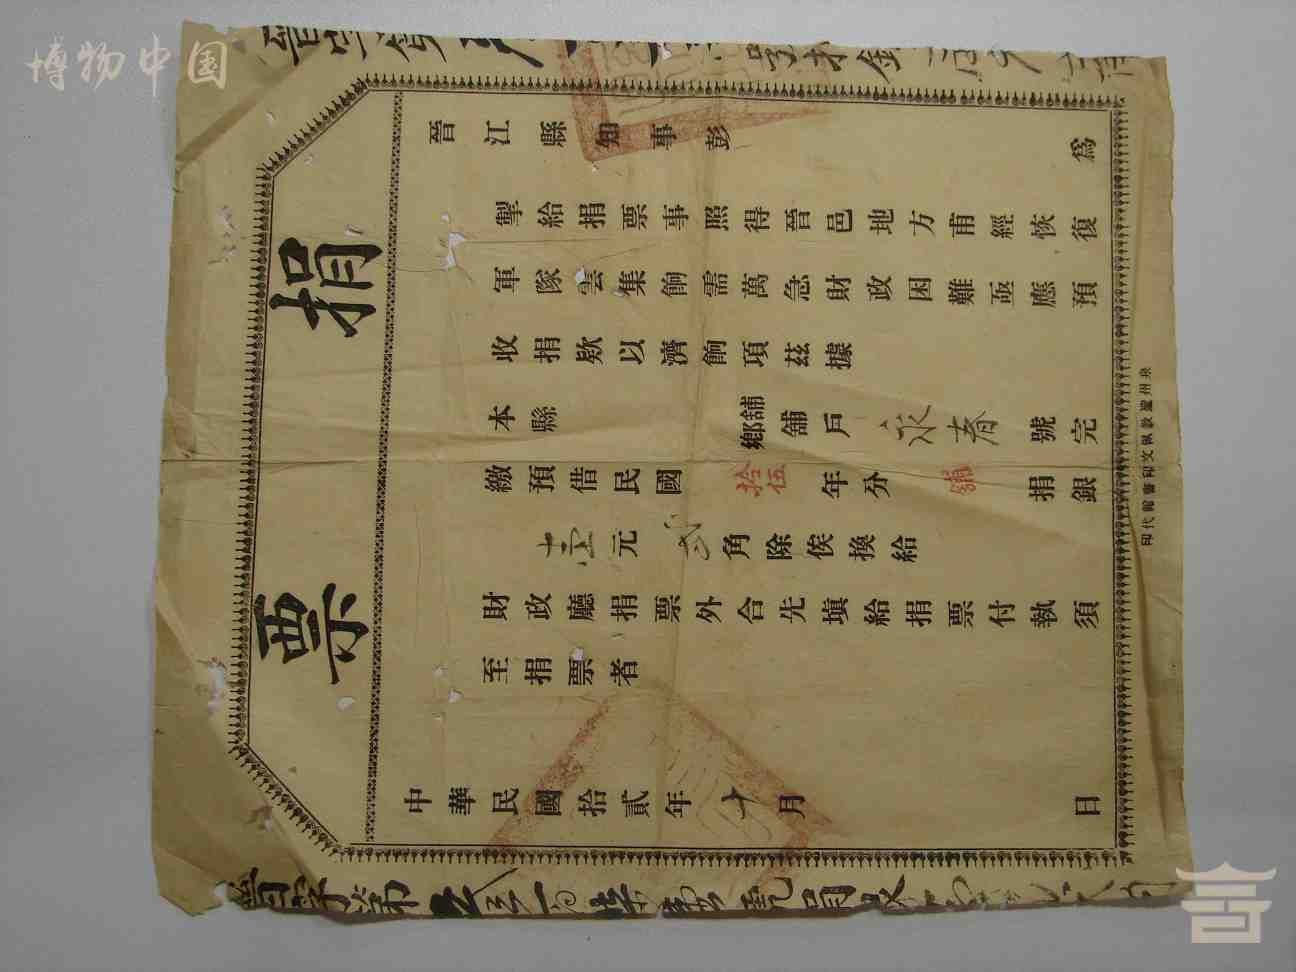 博物中国
捐票
晉江縣知事彭 為
掣給捐票事照得晉邑地方甫經恢復
軍隊雲集餉需萬急財政困難亟應預
收捐欵以濟餉項茲據
本縣 鄉舖舖戶永春號完
繳預借民國拾伍年分舖捐銀
壹元貳角除俟換給
財政廳捐票外合先塡給捐票付執須
至捐票者
中華民國拾貳年十月 日